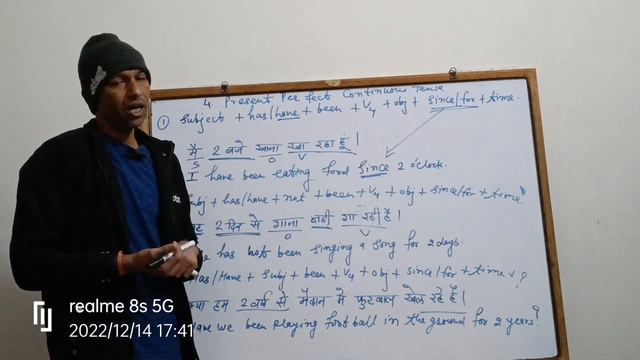 4. Present Perfect Continuous Tense
① Subject + has/have + been + V4 + obj + since/for + time.
मै 2 बजे खाना खा रहा हूँ।
S O V
I have been eating food Since 2 o'clock.
Subj + has/have + not + been + V4 + obj + since/for + time.
2 दिन से गाना नही गा रही है।
O V
has not been singing a song for 2 days.
Has/Have + Subj + been + V4 + obj + since/for + time + ?
क्या हम 2 वर्ष से मैदान मे फुटबाल खेल रहे है।
Have we been playing football in the ground for 2 years?
realme 8s 5G
2022/12/14 17:41